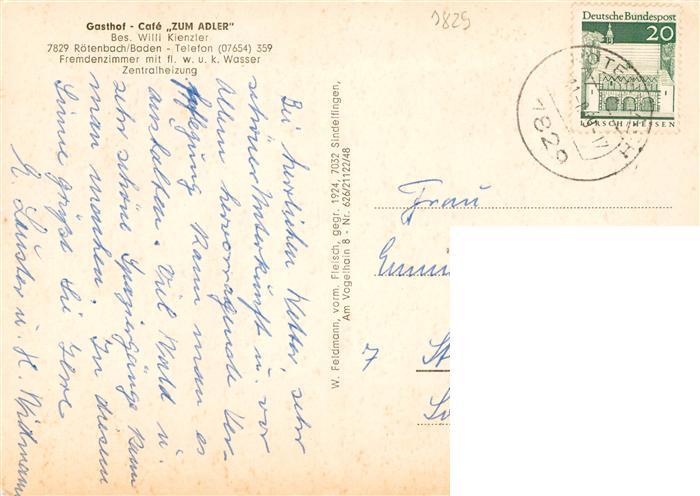 Gasthof - Café „ZUM ADLER"
Bes. Willi Kienzler
7829 Rötenbach/Baden - Telefon (07654) 359
Fremdenzimmer mit fl. w. u. k. Wasser
Zentralheizung
7829
Deutsche Bundespost
20
LORSCH/HESSEN
7829
Bei herrlichen Wetter, sehr
schöner Unterkunft u. vor
Allem hervorragende Ver-
pflegung kann man es
aushalten. Viel Wald u.
sehr schöne Spaziergänge kann
man machen. In diesem
Sinne grüßt Sie Ihre
W. Feldmann, vorm. Fleisch, gegr. 1924, 7032 Sindelfingen,
Am Vogelhain 8 - Nr. 626/21122/48
Frau
7